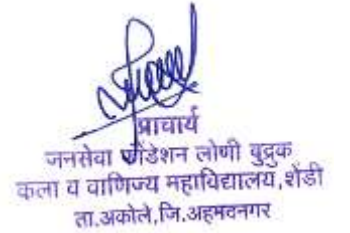 प्राचार्य
जनसेवा फौंडेशन लोणी बुद्रुक
कला व वाणिज्य महाविद्यालय, शेंडी
ता.अकोले,जि.अहमदनगर